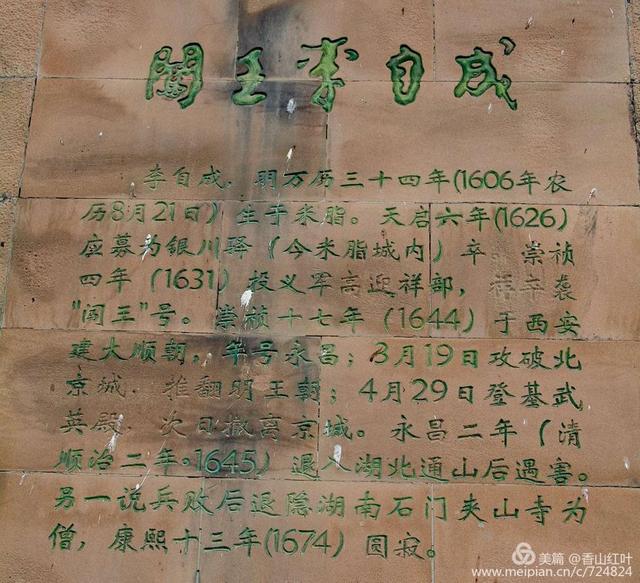 闖王李自成
李自成，明万历三十四年(1606年农
历8月21日）生于米脂。天启六年(1626)
应募为银川驿（今米脂城内）卒。崇祯
四年（1631）投义军高迎祥部，程年袭
"闯王"号。崇祯十七年（1644）于西安
建大顺朝，年号永昌；3月19日攻破北
京城，推翻明王朝；4月29日登基武
英殿，次日撤离京城。永昌二年（清
顺治二年·1645）退入湖北通山后遇害。
另一说兵败后退隐湖南石门夹山寺为
僧，康熙十三年(1674）圆寂。
美篇 @香山红叶
www.meipian.cn/c/724824